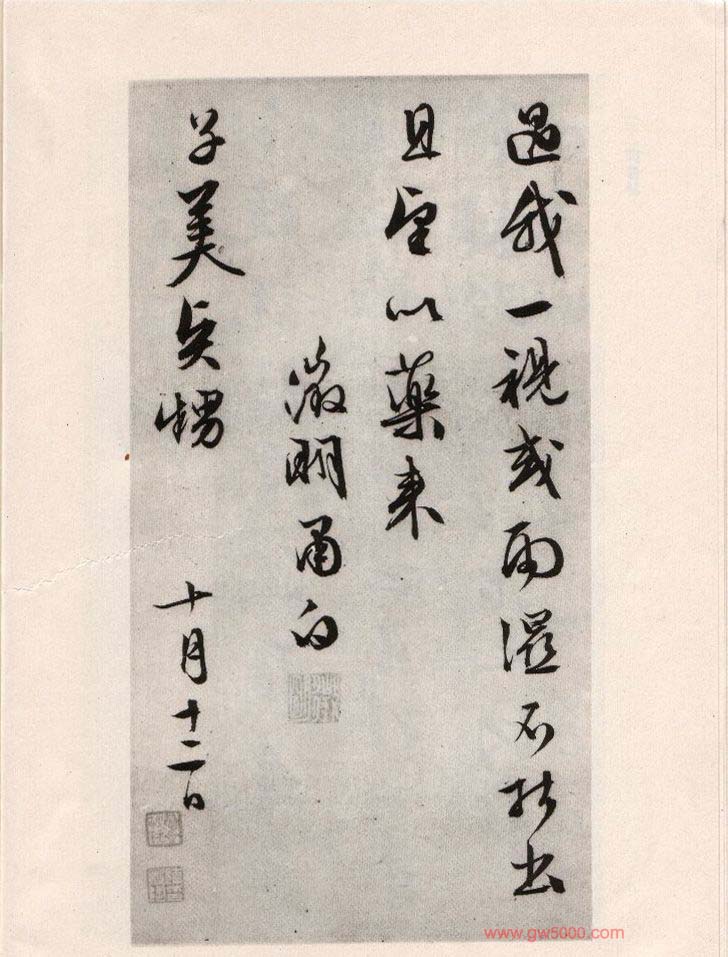 過我一視或雨濕不能出
且望以藥來
徵明再白
子美賢甥 十月十二日
www.gw5000.com